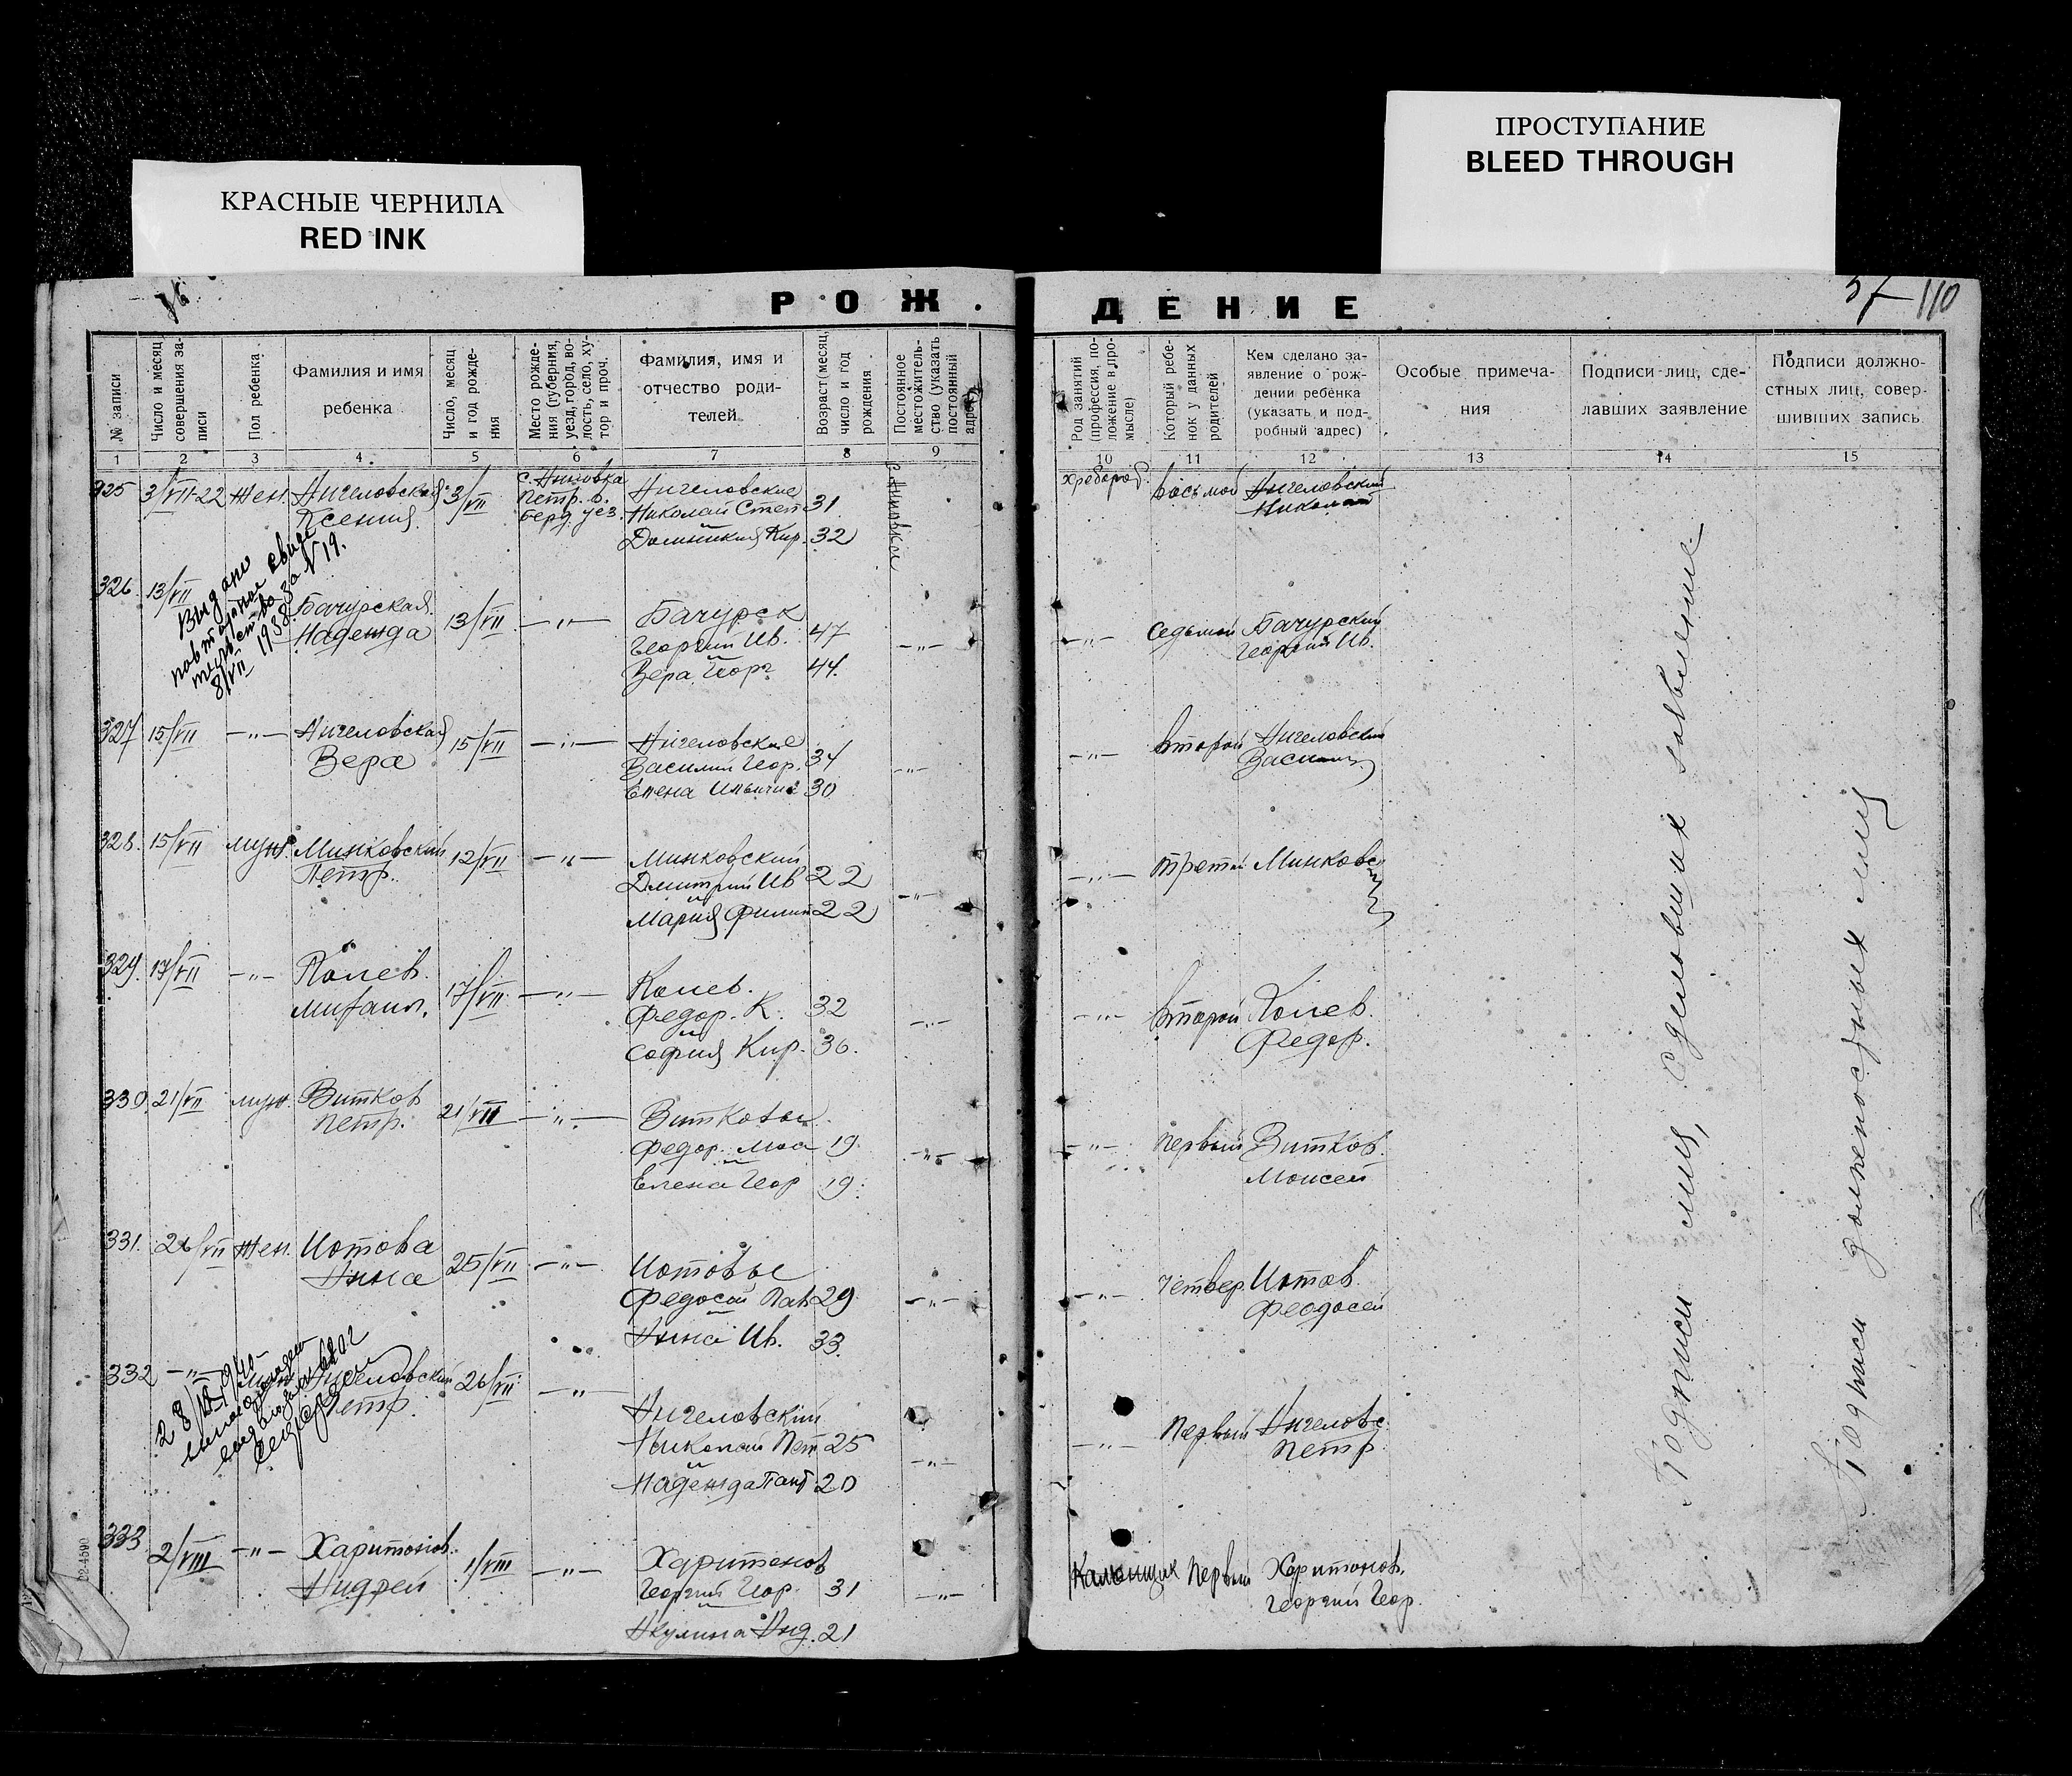 КРАСНЫЕ ЧЕРНИЛА
RED INK
ПРОСТУПАНИЕ
BLEED THROUGH
РОЖДЕНИЕ
110
№ записи
Число и месяц совершения записи
Пол ребенка
Фамилия и имя ребенка
Число, месяц и год рождения
Место рождения (губерния, уезд, город, волость, село, хутор и проч.
Фамилия, имя и отчество родителей
Возраст (месяц, число и год рождения
Постоянное местожительство (указать постоянный адрес)
Род занятий (профессия, положение в промысле)
Который ребенок у данных родителей
Кем сделано заявление о рождении ребенка (указать и подробный адрес)
Особые примечания
Подписи лиц, сделавших заявление
Подписи должностных лиц, совершивших запись
1 2 3 4 5 6 7 8 9 10 11 12 13 14 15
325 3/VII-22 жен. Ангеловская 3/VII
Ксения
Петр. в.
Берд. уез.
Ангеловские
Николай Степ 31
Домникия Кир. 32
хлебороб восьмой Ангеловский
Николай
326. 13/VII Бачурская
Надежда 13/VII -"-
Бачурск
Георгий Ив. 47 -"-
Вера Георг 44.
-"- седьмой Бачурский
Георгий Ив.
Выдано
повторное свиде
тельство за № 19.
8/VII 1938.
327 15/VII -"- Ангеловская 15/VII -"-
Вера
Ангеловские
Василий Геор. 34 -"-
Елена 30
-"- второй Ангеловский
Василий
328. 15/VII муж. Минковский 12/VII -"-
Петр.
Минковский
Дмитрий Ив 22 -"-
и
Мария Филип 22
-"- третий Минковс
329. 17/VII -"- Колев. 17/VII -"-
Михаил.
Колев.
Федор. К. 32 -"-
и
София Кир. 36.
-"- второй Колев.
Федор.
330. 21/VII муж. Витков 21/VII -"-
Петр.
Витковы
Федор. Мос 19. -"-
Елена Геор 19.
-"- первый Витков.
Моисей
331. 26/VII жен. Иотова 25/VII -"-
Анна
Иотовы
Федосей Пав 29. -"-
Анна Ив. 33.
-"- четвер Иотов.
Феодосей
332 -"- Ангеловский 26/VII -"-
Петр.
Ангеловский
Николай Пет 25 -"-
и
Надежда Пант 20
-"- первый Ангеловс.
Петр
333 2/VIII -"- Харитонов. 1/VIII -"-
Андрей
Харитонов
Георгий Геор. 31 -"-
Акулина Анд. 21
первый Харитонов.
Георгий Геор.
Подписи лиц, сделавших заявление
Подписи должностных лиц